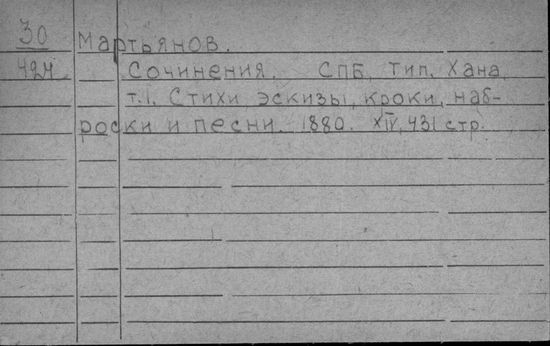 30
424
Мартьянов.
Сочинения. СПБ, Тип. Хана,
т.1. Стихи эскизы, кроки, наб-
роски и песни. 1880. XIV, 431 стр.